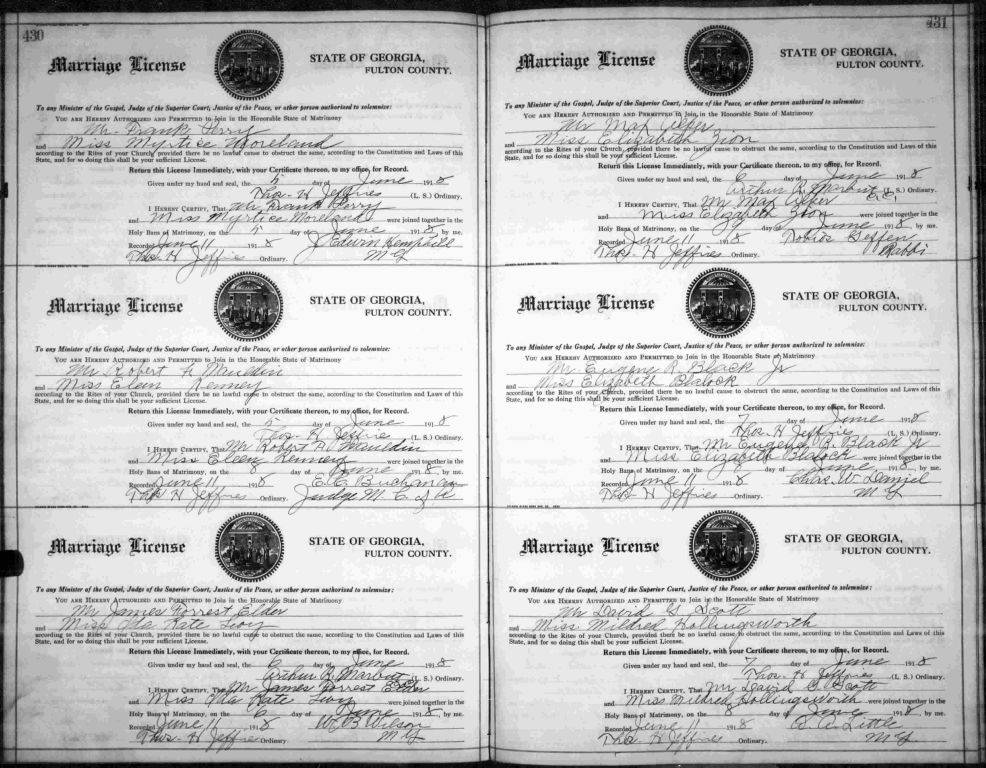 430
Marriage License
STATE OF GEORGIA,
FULTON COUNTY.
To any Minister of the Gospel, Judge of the Superior Court, Justice of the Peace, or other person authorized to solemnize:
YOU ARE HEREBY AUTHORIZED AND PERMITTED to Join in the Honorable State of Matrimony
Mr. Frank Perry
and Miss Myrtice Moreland
according to the Rites of your Church, provided there be no lawful cause to obstruct the same, according to the Constitution and Laws of this
State, and for so doing this shall be your sufficient License.
Return this License Immediately, with your Certificate thereon, to my office, for Record.
Given under my hand and seal, the 5 day of June 1918
Thos. H Jeffries (L. S.) Ordinary.
I HEREBY CERTIFY, That Mr Frank Perry
and Miss Myrtice Moreland were joined together in the
Holy Bans of Matrimony, on the 5 day of June 1918, by me.
Recorded June 11 1918 J Edwin Hemphill
Thos. H Jeffries Ordinary. M G
Marriage License
STATE OF GEORGIA,
FULTON COUNTY.
To any Minister of the Gospel, Judge of the Superior Court, Justice of the Peace, or other person authorized to solemnize:
YOU ARE HEREBY AUTHORIZED AND PERMITTED to Join in the Honorable State of Matrimony
Mr Robert H Mauldin
and Miss Eleen Kenney
according to the Rites of your Church, provided there be no lawful cause to obstruct the same, according to the Constitution and Laws of this
State, and for so doing this shall be your sufficient License.
Return this License Immediately, with your Certificate thereon, to my office, for Record.
Given under my hand and seal, the 5 day of June 1918
Thos. H Jeffries (L. S.) Ordinary.
I HEREBY CERTIFY, That Mr Robert H Mauldin
and Miss Eleen Kenney were joined together in the
Holy Bans of Matrimony, on the 8 day of June 1918, by me.
Recorded June 11 1918 E. E. Buchanan
Thos H Jeffries Ordinary. Judge M. C. of
Marriage License
STATE OF GEORGIA,
FULTON COUNTY.
To any Minister of the Gospel, Judge of the Superior Court, Justice of the Peace, or other person authorized to solemnize:
YOU ARE HEREBY AUTHORIZED AND PERMITTED to Join in the Honorable State of Matrimony
Mr James Forrest Elder
and Miss Ida Kate Ivoy
according to the Rites of your Church, provided there be no lawful cause to obstruct the same, according to the Constitution and Laws of this
State, and for so doing this shall be your sufficient License.
Return this License Immediately, with your Certificate thereon, to my office, for Record.
Given under my hand and seal, the 6 day of June 1918
Arthur R. Marbut (L. S.) Ordinary.
I HEREBY CERTIFY, That Mr James Forrest Elder
and Miss Ida Kate Ivoy were joined together in the
Holy Bans of Matrimony, on the 6 day of June 1918, by me.
Recorded June 11 1918 W. B Wilson
Thos. H Jeffries Ordinary. M G
431
Marriage License
STATE OF GEORGIA,
FULTON COUNTY.
To any Minister of the Gospel, Judge of the Superior Court, Justice of the Peace, or other person authorized to solemnize:
YOU ARE HEREBY AUTHORIZED AND PERMITTED to Join in the Honorable State of Matrimony
Mr Max
and Miss Elizabeth Zion
according to the Rites of your Church, provided there be no lawful cause to obstruct the same, according to the Constitution and Laws of this
State, and for so doing this shall be your sufficient License.
Return this License Immediately, with your Certificate thereon, to my office, for Record.
Given under my hand and seal, the 6 day of June 1918
Arthur R. Marbut (L. S.) Ordinary.
I HEREBY CERTIFY, That Mr Max
and Miss Elizabeth Zion were joined together in the
Holy Bans of Matrimony, on the 9 day of June 1918, by me.
Recorded June 11 1918 Tobias Geffen
Thos. H Jeffries Ordinary. Rabbi
Marriage License
STATE OF GEORGIA,
FULTON COUNTY.
To any Minister of the Gospel, Judge of the Superior Court, Justice of the Peace, or other person authorized to solemnize:
YOU ARE HEREBY AUTHORIZED AND PERMITTED to Join in the Honorable State of Matrimony
Mr. Eugene R. Black Jr
and Miss Elizabeth Blalock
according to the Rites of your Church, provided there be no lawful cause to obstruct the same, according to the Constitution and Laws of this
State, and for so doing this shall be your sufficient License.
Return this License Immediately, with your Certificate thereon, to my office, for Record.
Given under my hand and seal, the 7 day of June 1918
Thos. H Jeffries (L. S.) Ordinary.
I HEREBY CERTIFY, That Mr. Eugene R. Black Jr
and Miss Elizabeth Blalock were joined together in the
Holy Bans of Matrimony, on the 8 day of June 1918, by me.
Recorded June 11 1918 Chas. W. Daniel
Thos. H Jeffries Ordinary. M G
Marriage License
STATE OF GEORGIA,
FULTON COUNTY.
To any Minister of the Gospel, Judge of the Superior Court, Justice of the Peace, or other person authorized to solemnize:
YOU ARE HEREBY AUTHORIZED AND PERMITTED to Join in the Honorable State of Matrimony
Mr David G Scott
and Miss Mildred Hollingsworth
according to the Rites of your Church, provided there be no lawful cause to obstruct the same, according to the Constitution and Laws of this
State, and for so doing this shall be your sufficient License.
Return this License Immediately, with your Certificate thereon, to my office, for Record.
Given under my hand and seal, the 7 day of June 1918
Thos. H Jeffries (L. S.) Ordinary.
I HEREBY CERTIFY, That Mr David G Scott
and Miss Mildred Hollingsworth were joined together in the
Holy Bans of Matrimony, on the 8 day of June 1918, by me.
Recorded June 11 1918 Little
Thos. H Jeffries Ordinary. M G